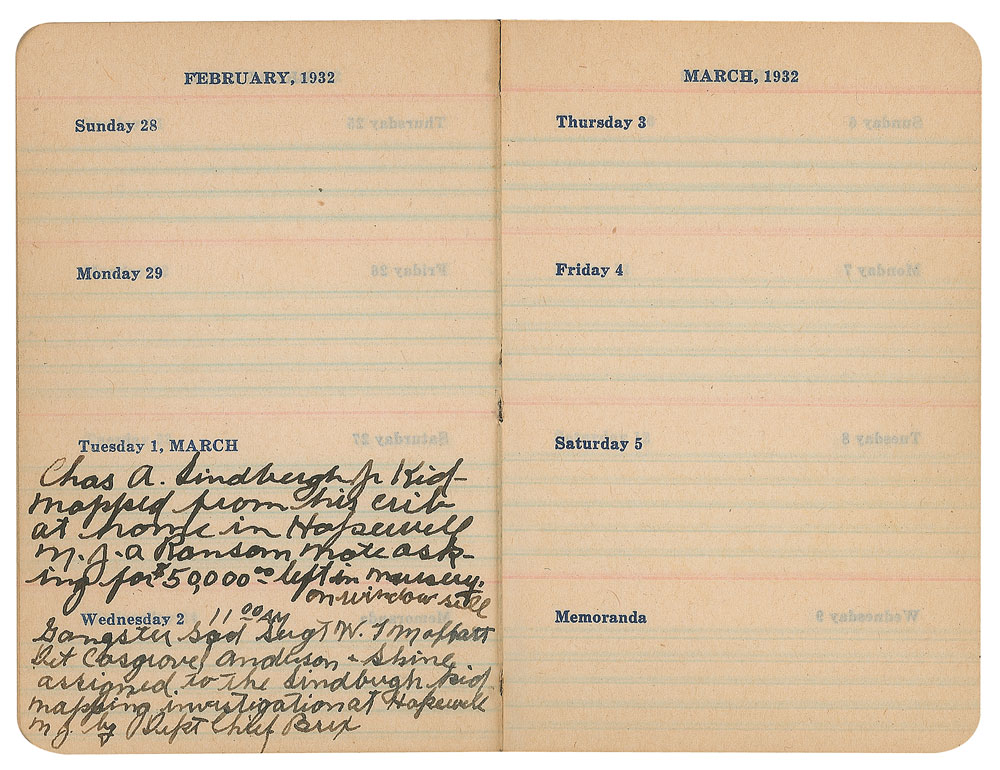 FEBRUARY, 1932
Sunday 28
Monday 29
Tuesday 1, MARCH
Chas A. Lindbergh Jr Kid-
napped from his crib
at home in Hopewell
N. J. a Ransom note ask-
ing for $50,000.00 left in nursery.
on window sill
Wednesday 2 11:00 AM
Gangster Sqd Sergt W. J Moffatt
Det Cosgrove, Anderson & Shine
assigned to the Lindbergh kid
napping investigation at Hopewell
N J. by Dept Chief Brix
MARCH, 1932
Thursday 3
Friday 4
Saturday 5
Memoranda